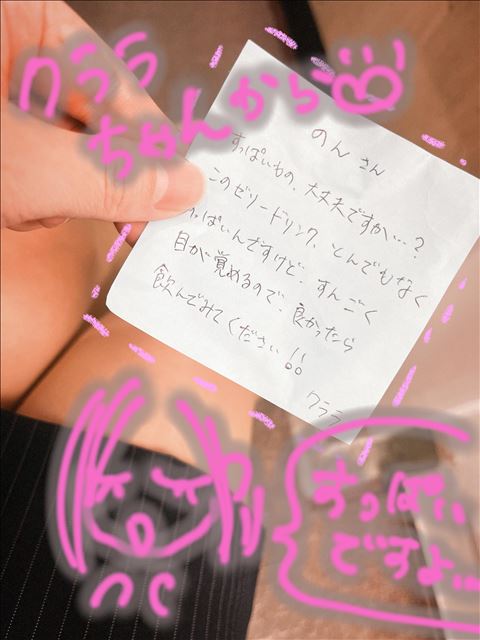 クララ
ちゃんから
のんさん
すっぱいもの、大丈夫ですか…?
このゼリードリンク、とんでもなく
っぱいんですけど、すんごく
目が覚めるので、良かったら
飲んでみてください!!
クララ
すっぱい
ですよ…